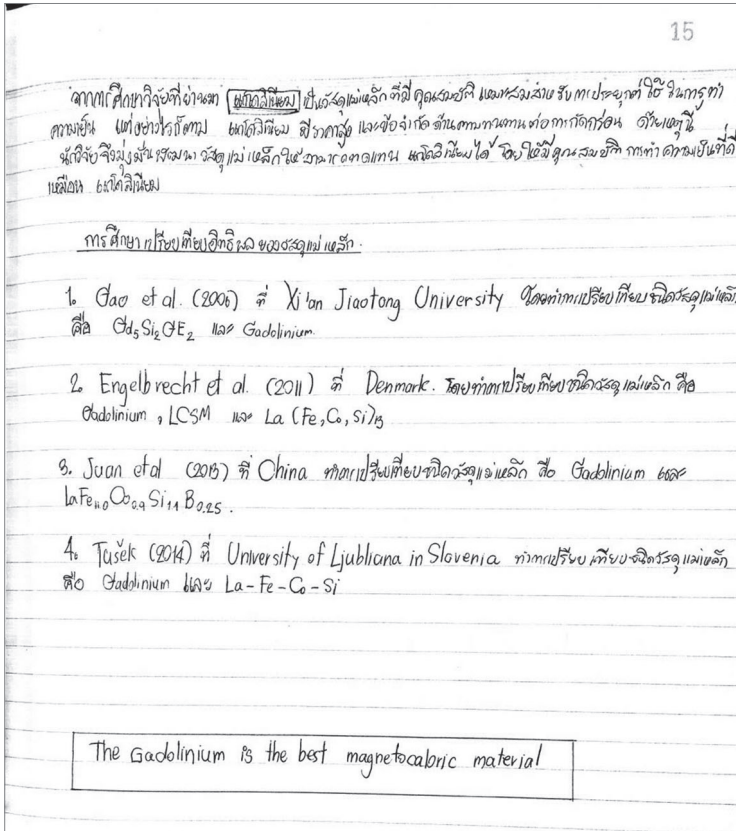 15
จากการศึกษาวิจัยที่ผ่านมา แกโดลิเนียม เป็นวัสดุแม่เหล็กที่มีคุณสมบัติ เหมาะสมสำหรับการประยุกต์ใช้ในการทำ
ความเย็น แต่อย่างไรก็ตาม แกโดลิเนียม มีราคาสูง และข้อจำกัดด้านความทนทานต่อการกัดกร่อน ด้วยเหตุนี้
นักวิจัยจึงมุ่งมั่นพัฒนาวัสดุแม่เหล็กให้สามารถทดแทน แกโดลิเนียมได้ โดยให้มีคุณสมบัติการทำความเย็นที่ดี
เหมือน แกโดลิเนียม
การศึกษาเปรียบเทียบอิทธิผลของวัสดุแม่เหล็ก.
1. Gao et al. (2006) ที่ Xi'an Jiaotong University โดยทำการเปรียบเทียบชนิดวัสดุแม่เหล็ก
คือ Gd₅Si₂GE₂ และ Gadolinium.
2. Engelbrecht et al. (2011) ที่ Denmark. โดยทำการเปรียบเทียบชนิดวัสดุแม่เหล็ก คือ
Gadolinium, LCSM และ La(Fe,Co,Si)₁₃
3. Juan et al (2013) ที่ China ทำการเปรียบเทียบชนิดวัสดุแม่เหล็ก คือ Gadolinium และ
LaFe₁₁.₀Co₀.₉Si₁.₁B₀.₂₅.
4. Tušek (2014) ที่ University of Ljubliana in Slovenia ทำการเปรียบเทียบชนิดวัสดุแม่เหล็ก
คือ Gadolinium และ La-Fe-Co-Si
The Gadolinium is the best magnetocaloric material